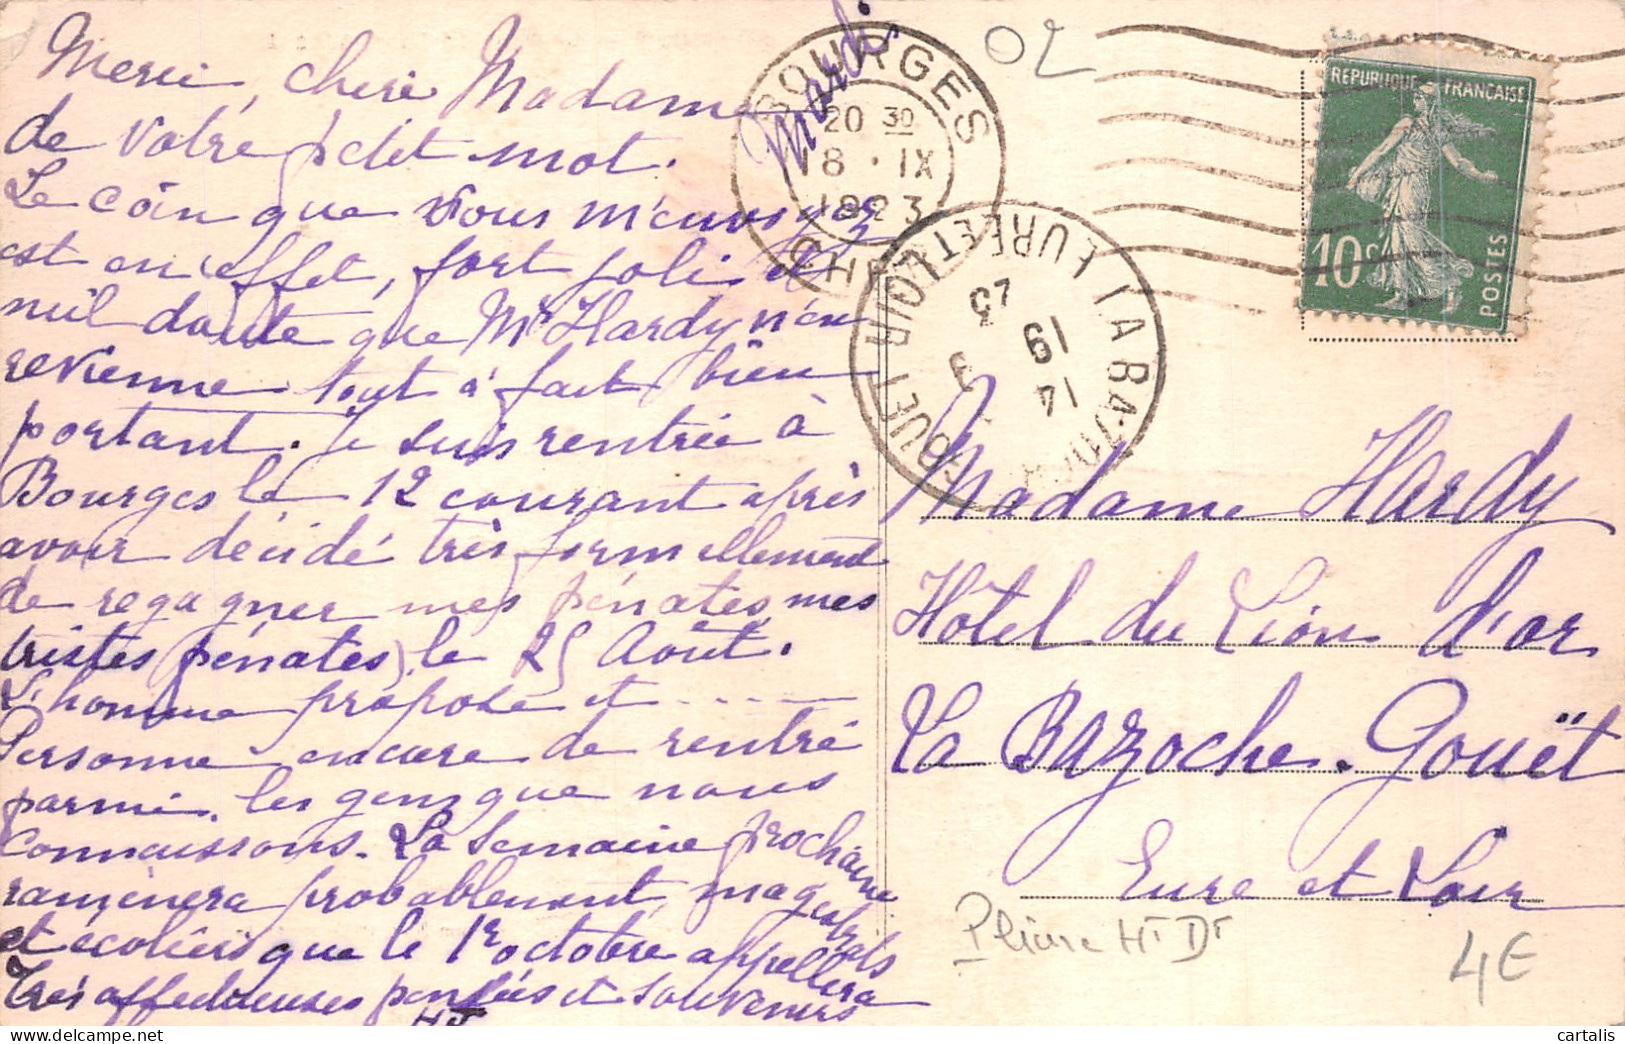 Mardi
Merci, chère Madame
de votre petit mot.
Le coin que vous m'envoyez
est en effet, fort joli et
nul doute que Mr Hardy n'en
revienne tout à fait bien
portant. Je suis rentrée à
Bourges le 12 courant après
avoir décidé très formellement
de regagner mes pénates, mes
tristes pénates) le 25 Août.
L'homme propose et .....
Personne encore de rentré
parmi les gens que nous
connaissons. La semaine prochaine
ramènera probablement, magistrats
et écoliers que le 1er octobre appellera
Très affectueuses pensées et souvenirs
HJ
BOURGES
20 30
18 · IX
1923
CHER
LA BAZOCHE-GOUET
EURE ET LOIR
14
19 9
23
O2
REPUBLIQUE FRANCAISE
10c
POSTES
Madame Hardy
Hôtel du Lion d'or
La Bazoche-Gouët
Eure et Loir
Pliure Ht Dt
4E
cartalis